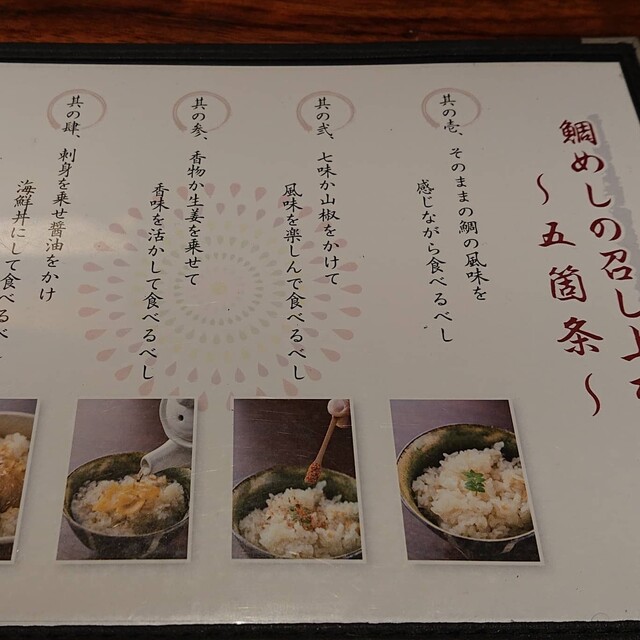 鯛めしの召し上
～五箇条～
其の壱、そのままの鯛の風味を
感じながら食べるべし
其の弐、七味か山椒をかけて
風味を楽しんで食べるべし
其の参、香物か生姜を乗せて
香味を活かして食べるべし
其の肆、刺身を乗せ醤油をかけ
海鮮丼にして食べるべ